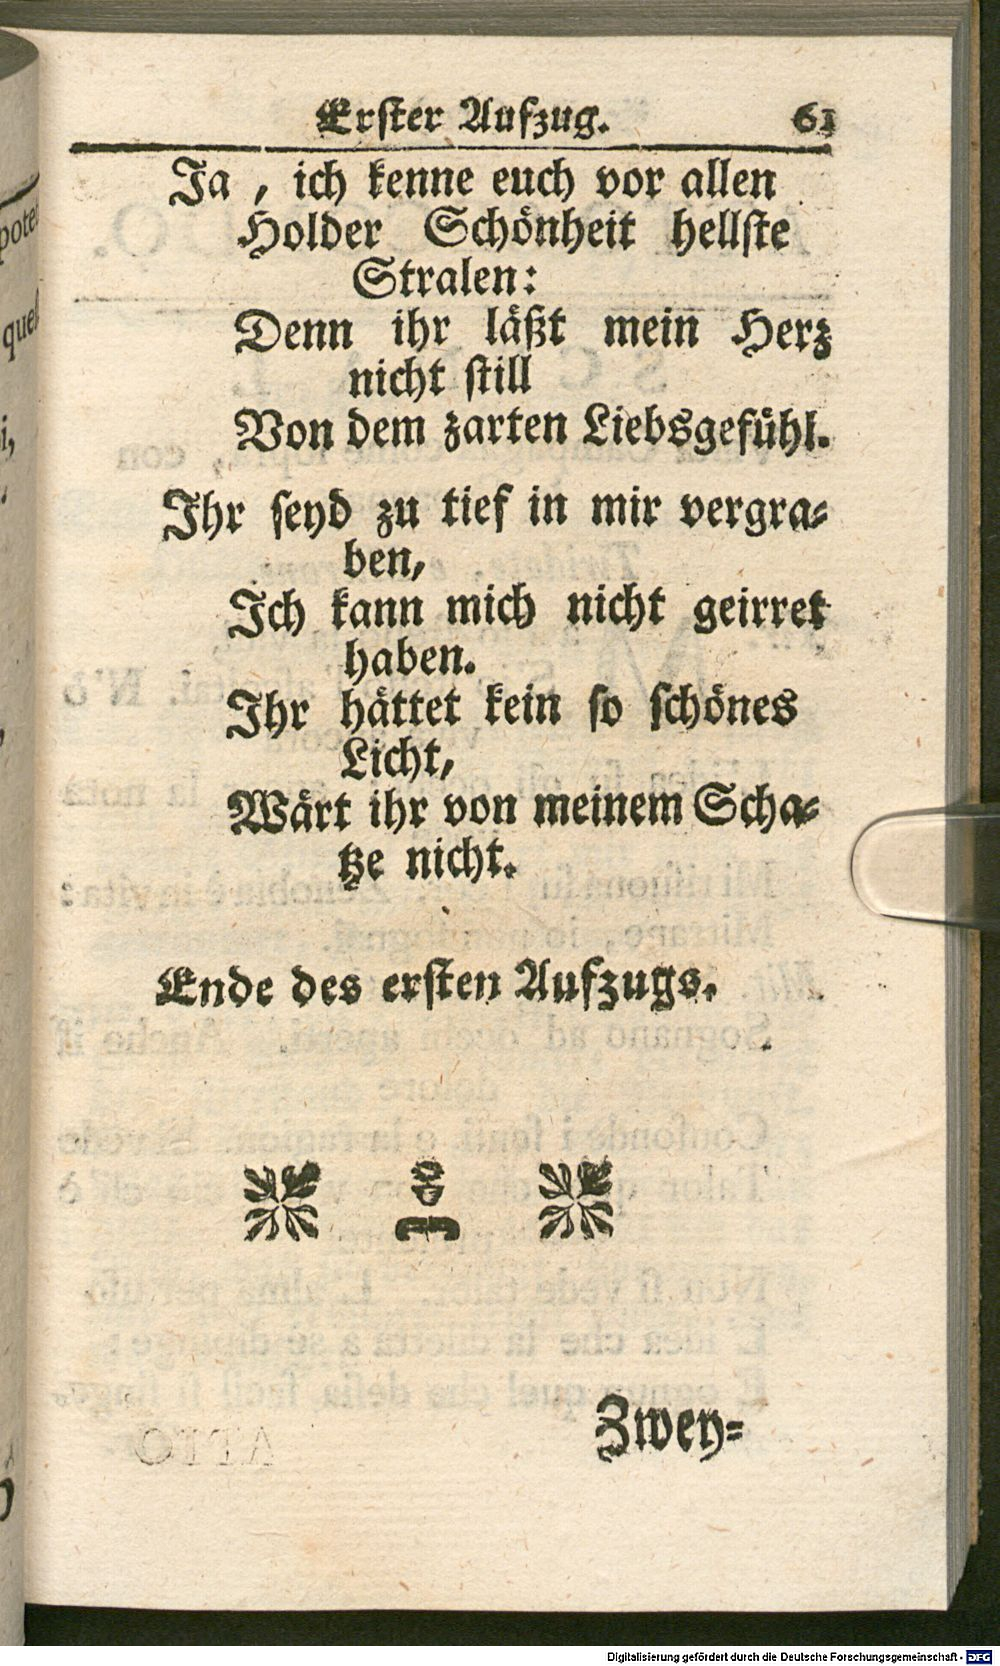 Erster Aufzug. 61
Ja, ich kenne euch vor allen
Holder Schönheit hellste
Stralen:
Denn ihr läßt mein Herz
nicht still
Von dem zarten Liebsgefühl.
Ihr seyd zu tief in mir vergra-
ben,
Ich kann mich nicht geirret
haben.
Ihr hättet kein so schönes
Licht,
Wärt ihr von meinem Scha-
tze nicht.
Ende des ersten Aufzugs.
Zwey-
Digitalisierung gefördert durch die Deutsche Forschungsgemeinschaft - DFG